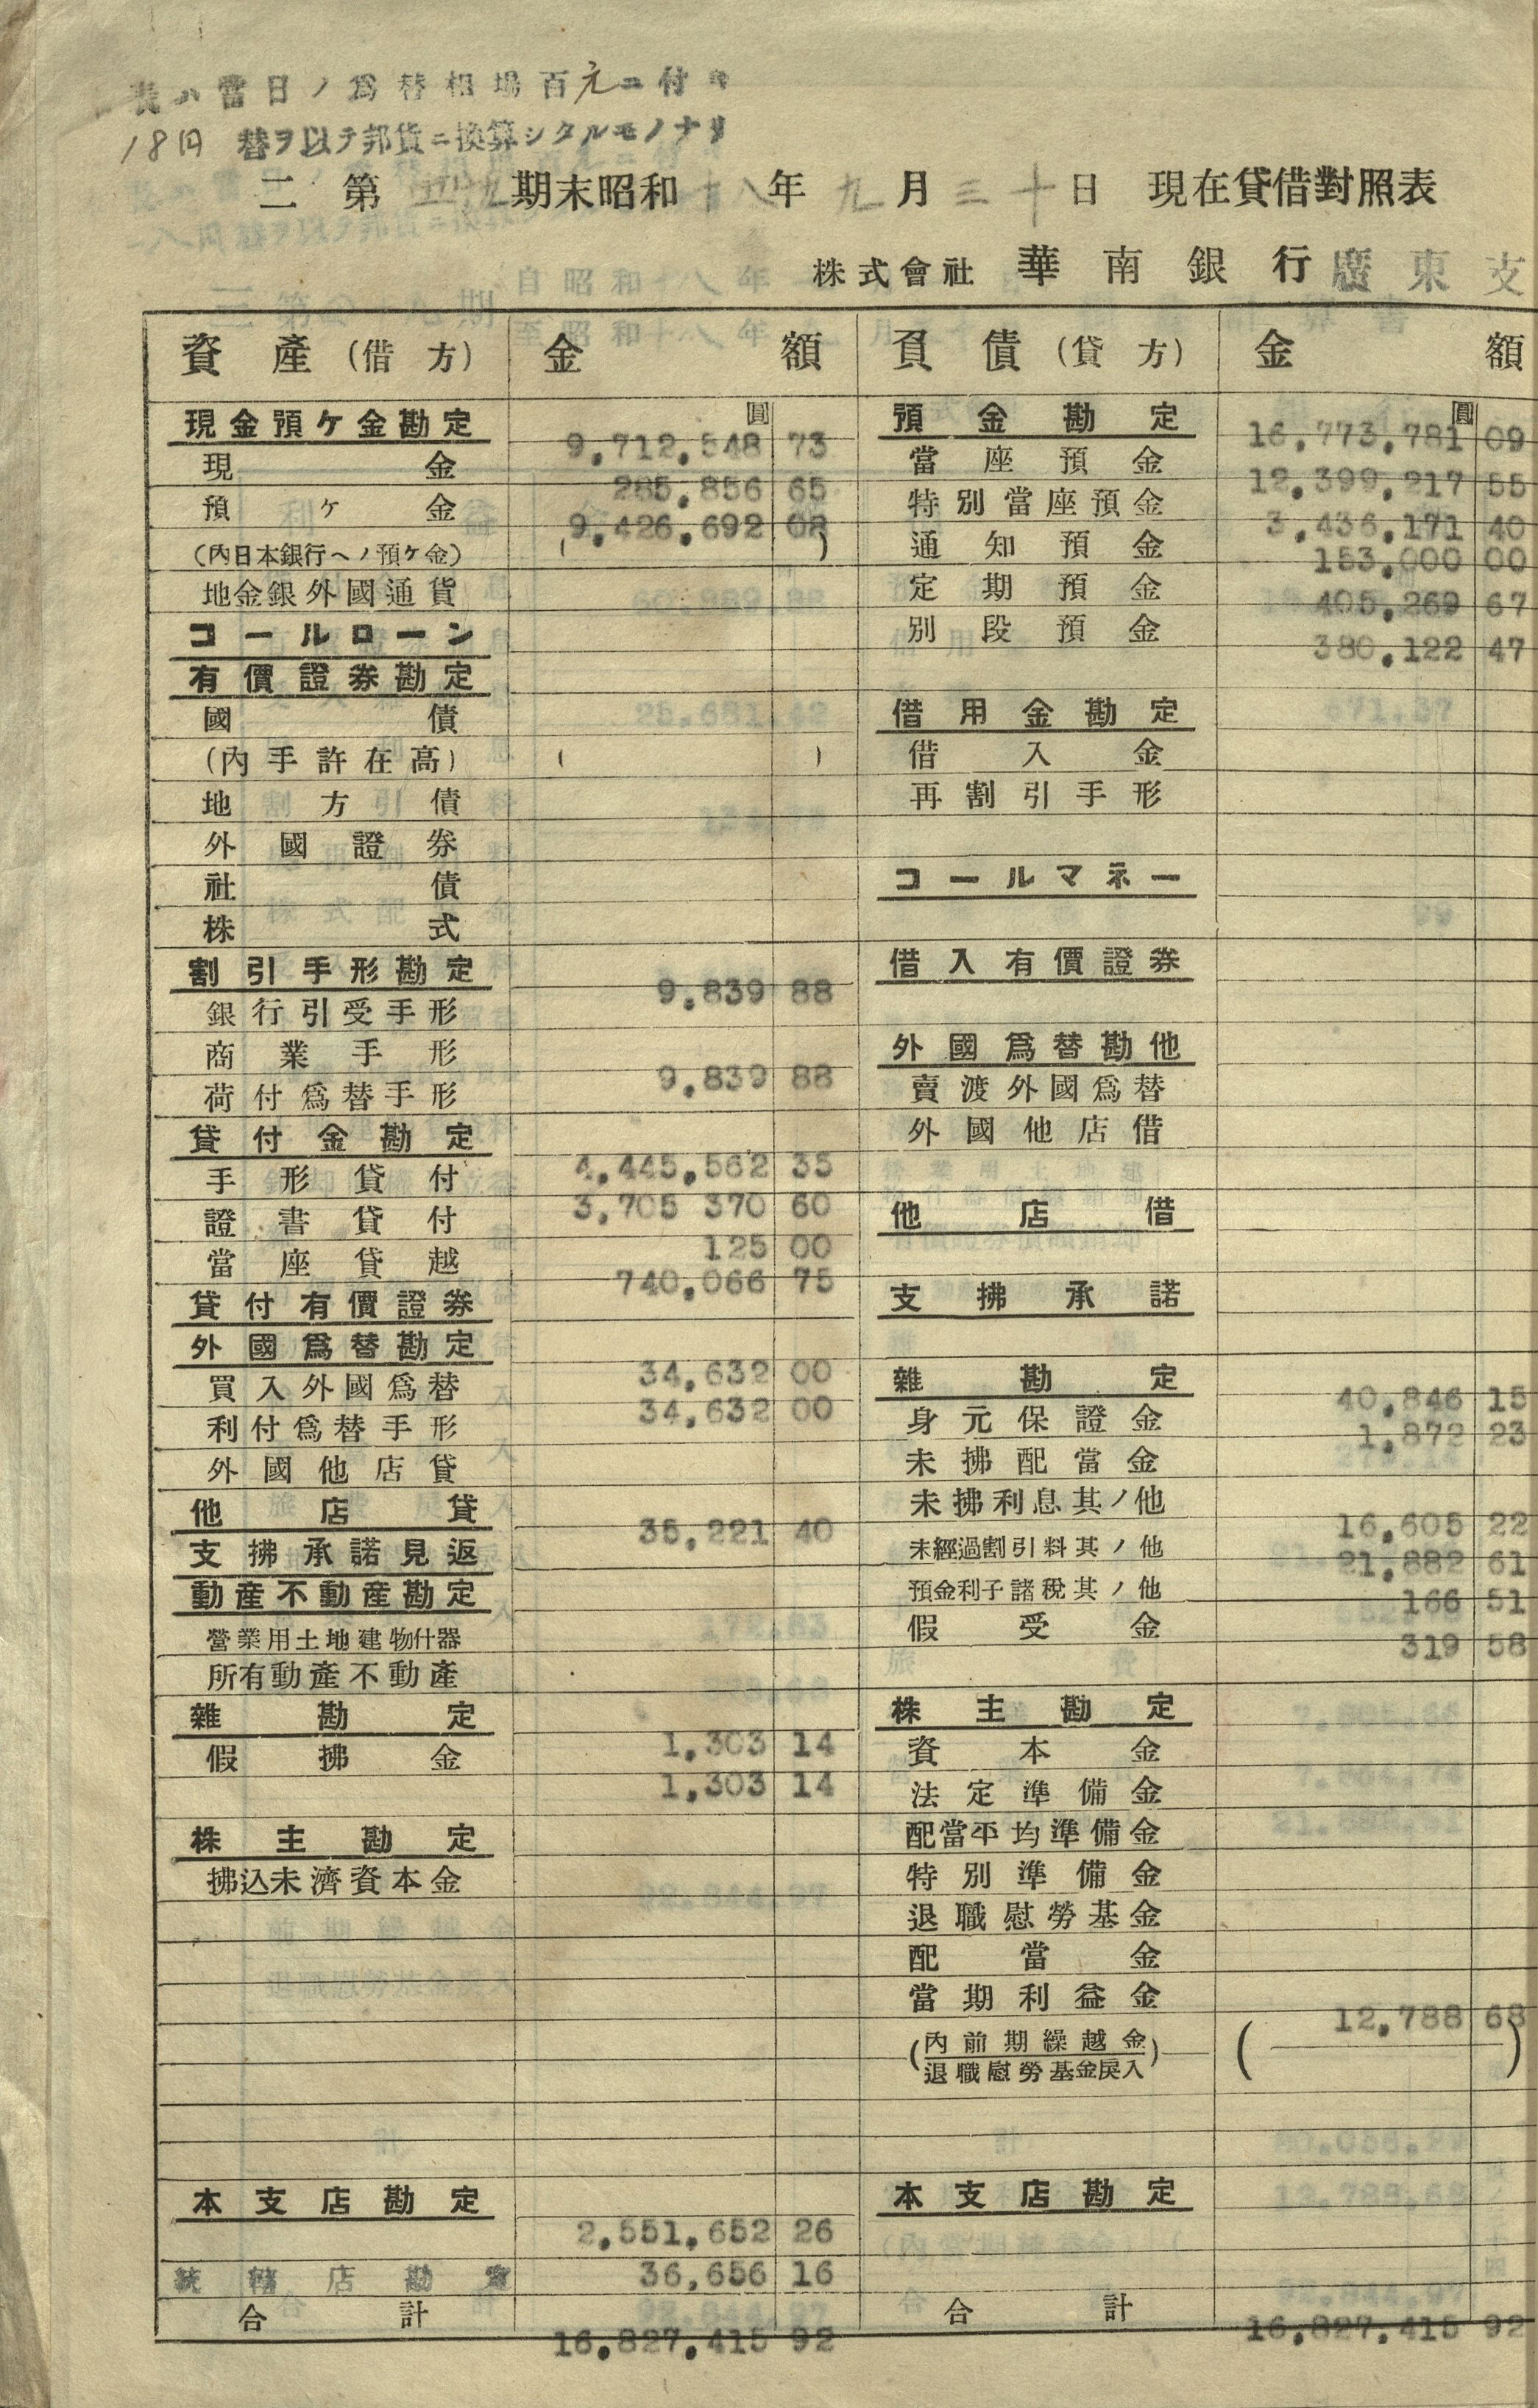 表ハ當日ノ爲替相場百元ニ付キ
18円 替ヲ以テ邦貨ニ換算シタルモノナリ
二 第 四九 期末昭和 十八 年 九 月 三十 日 現在貸借對照表
株式會社 華南銀行 廣東支
資產(借方) 金額 負債(貸方) 金額
現金預ケ金勘定 圓 9,712,548 73 預金勘定 圓 16,773,781 09
現金 285,856 65 當座預金 12,399,217 55
預ケ金 9,426,692 08 特別當座預金 3,436,171 40
(內日本銀行ヘノ預ケ金) ( ) 通知預金 153,000 00
地金銀外國通貨 定期預金 405,269 67
コールローン 別段預金 380,122 47
有價證券勘定
國債 借用金勘定
(內手許在高) ( ) 借入金
地方債 再割引手形
外國證券
社債 コールマネー
株式
割引手形勘定 9,839 88 借入有價證券
銀行引受手形
商業手形 9,839 88 外國爲替勘他
荷付爲替手形 賣渡外國爲替
貸付金勘定 4,445,562 35 外國他店借
手形貸付 3,705 370 60
證書貸付 125 00 他店借
當座貸越 740,066 75
貸付有價證券 支拂承諾
外國爲替勘定 34,632 00
買入外國爲替 34,632 00 雜勘定 40,846 15
利付爲替手形 身元保證金 1,872 23
外國他店貸 未拂配當金
他店貸 35,221 40 未拂利息其ノ他 16,605 22
支拂承諾見返 未經過割引料其ノ他 21,882 61
動產不動產勘定 預金利子諸稅其ノ他 166 51
營業用土地建物什器 假受金 319 58
所有動產不動產
雜勘定 1,303 14 株主勘定
假拂金 1,303 14 資本金
法定準備金
株主勘定 配當平均準備金
拂込未濟資本金 特別準備金
退職慰勞基金
配當金
當期利益金 12,788 68
(內前期繰越金 ( )
退職慰勞基金戾入)
本支店勘定 2,551,652 26 本支店勘定
統轄店勘定 36,656 16
合計 16,827,415 92 合計 16,827,415 92